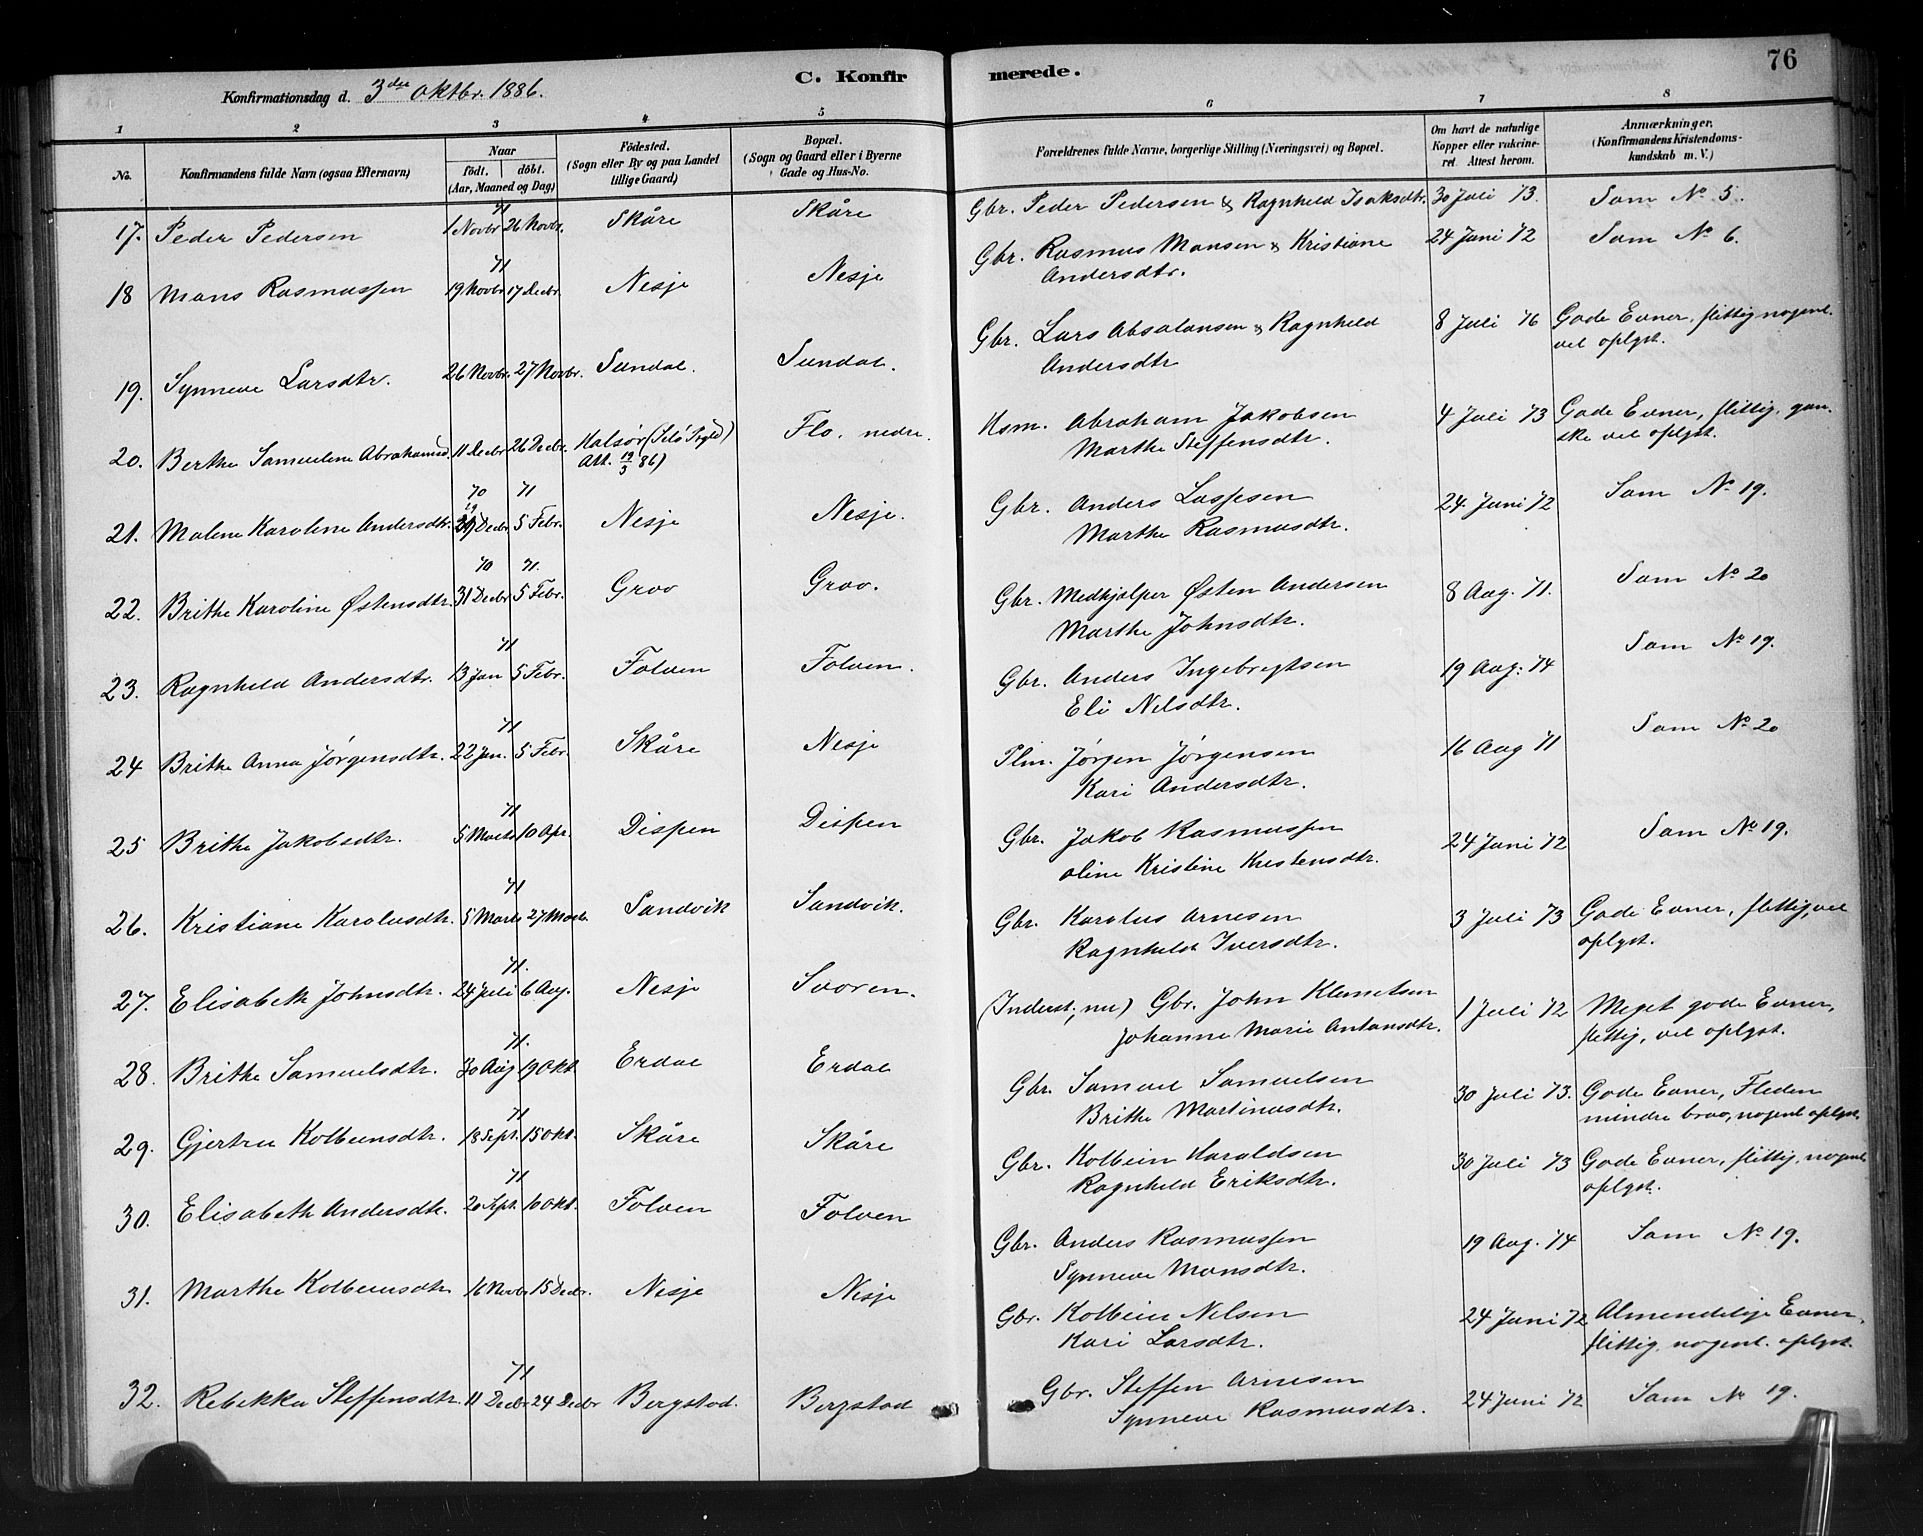 76
Konfirmationsdag d. 3die Oktbr. 1886.
C. Konfirmerede.
1 2 3 4 5 6 7 8
No. Konfirmandens fulde Navn (ogsaa Efternavn) Naar födt. döbt. (Aar, Maaned og Dag) Födested. (Sogn eller By og paa Landet tillige Gaard) Bopæl. (Sogn og Gaard eller i Byerne Gade og Hus-No. Forældrenes fulde Navne, borgerlige Stilling (Næringsvei) og Bopæl. Om havt de naturlige Kopper eller vakcineret. Attest herom. Anmærkninger. (Konfirmandens Kristendomskundskab m. V.)
71
17. Peder Pedersen 1 Novbr. 26 Novbr. Skåre Skåre Gbr. Peder Pedersen & Ragnheld Isaksdtr. 30 Juli 73. Som No 5.
71
18 Mons Rasmussen 19 Novbr. 17 Decbr. Nesje Nesje Gbr. Rasmus Monsen & Kristiane 24 Juni 72 Som No 6.
Andersdtr.
19. Synneve Larsdtr. 26 Novbr. 27 Novbr. Sundal. Sundal. Gbr. Lars Absalonsen & Ragnheld 8 Juli 76 Gode Evner, flittig nogenl.
Andersdtr vel oplyst.
20. Berthe Samueline Abrahamsd. 11 Decbr. 26 Decbr. Kalsør (Selø Sogld) Flo. nedre. Hsm. Abraham Jakobsen 4 Juli 73 Gode Evner, flittig, gan-
Att. 19/5 86) Marthe Steffensdtr. ske vel oplyst.
70 71
29
21. Malene Karoline Andersdtr. Decbr. 5 Febr. Nesje Nesje. Gbr. Anders Lassesen 24. Juni 72 Som No 19.
Marthe Rasmusdtr.
70 71.
22. Brithe Karoline Østensdtr. 31 Decbr. 5 Febr. Grov Grov. Gbr. Medhjælper Østen Andersen 8 Aug. 71. Som No 20
Marthe Johnsdtr.
71
23. Ragnheld Andersdtr. 13 Jan 5 Febr. Folven Folven. Gbr. Anders Ingebrigtsen 19 Aug. 74 Som No 19.
Eli Nilsdtr.
71
24 Brithe Anna Jørgensdtr. 22 Jan. 5 Febr. Skåre Nesje Plm. Jørgen Jørgensen 16 Aug 71 Som No 20
Kari Andersdtr.
71
25 Brithe Jakobsdtr. 5 Marts 10 Apr. Dispen Dispen Gbr. Jakob Rasmussen 24 Juni 72 Som No 19.
Oline Kristine Kristensdtr.
71
26. Kristiane Karolusdtr. 5 Marts 27 Marts. Sandvik Sandvik. Gbr. Karolus Arnesen 3 Juli 73 Gode Evner, flittig, vel
Ragnheld Iversdtr. oplyst.
71.
27. Elisabeth Johnsdtr. 24 Juli 6 Aug. Nesje Svoren. (Inderst, nu) Gbr. John Klemetsen 1 Juli 72 Meget gode Evner,
Johanne Marie Antonsdtr. flittig, vel oplyst.
71.
28. Brithe Samuelsdtr. 30 Aug 19 Okt. Erdal Erdal Gbr. Samuel Samuelsen 30 Juli 73. Gode Evner, Fliden
Brithe Martinusdtr. mindre brav, nogenl. oplyst.
71
29. Gjertru Kolbeinsdtr. 18 Sept. 15 Okt. Skåre Skåre Gbr. Kolbein Haraldsen 30 Juli 73 Gode Evner, flittig, nogenl.
Ragnheld Eriksdtr. oplyst.
71
30. Elisabeth Andersdtr. 20 Sept. 10 Okt. Folven Folven Gbr. Anders Rasmussen 19 Aug. 74 Som No 19.
Synneve Monsdtr.
31. Marthe Kolbeinsdtr 16 Novbr. 15 Decbr. Nesje Nesje Gbr. Kolbein Nilsen 24 Juni 72 Almendelige Evner,
Kari Larsdtr. flittig, nogenl. oplyst.
71
32. Rebekka Steffensdtr. 11 Decbr. 24 Decbr Bergstad. Bergstad Gbr. Steffen Arnesen 24 Juni 72 Som No 19.
Synneve Rasmusdtr.